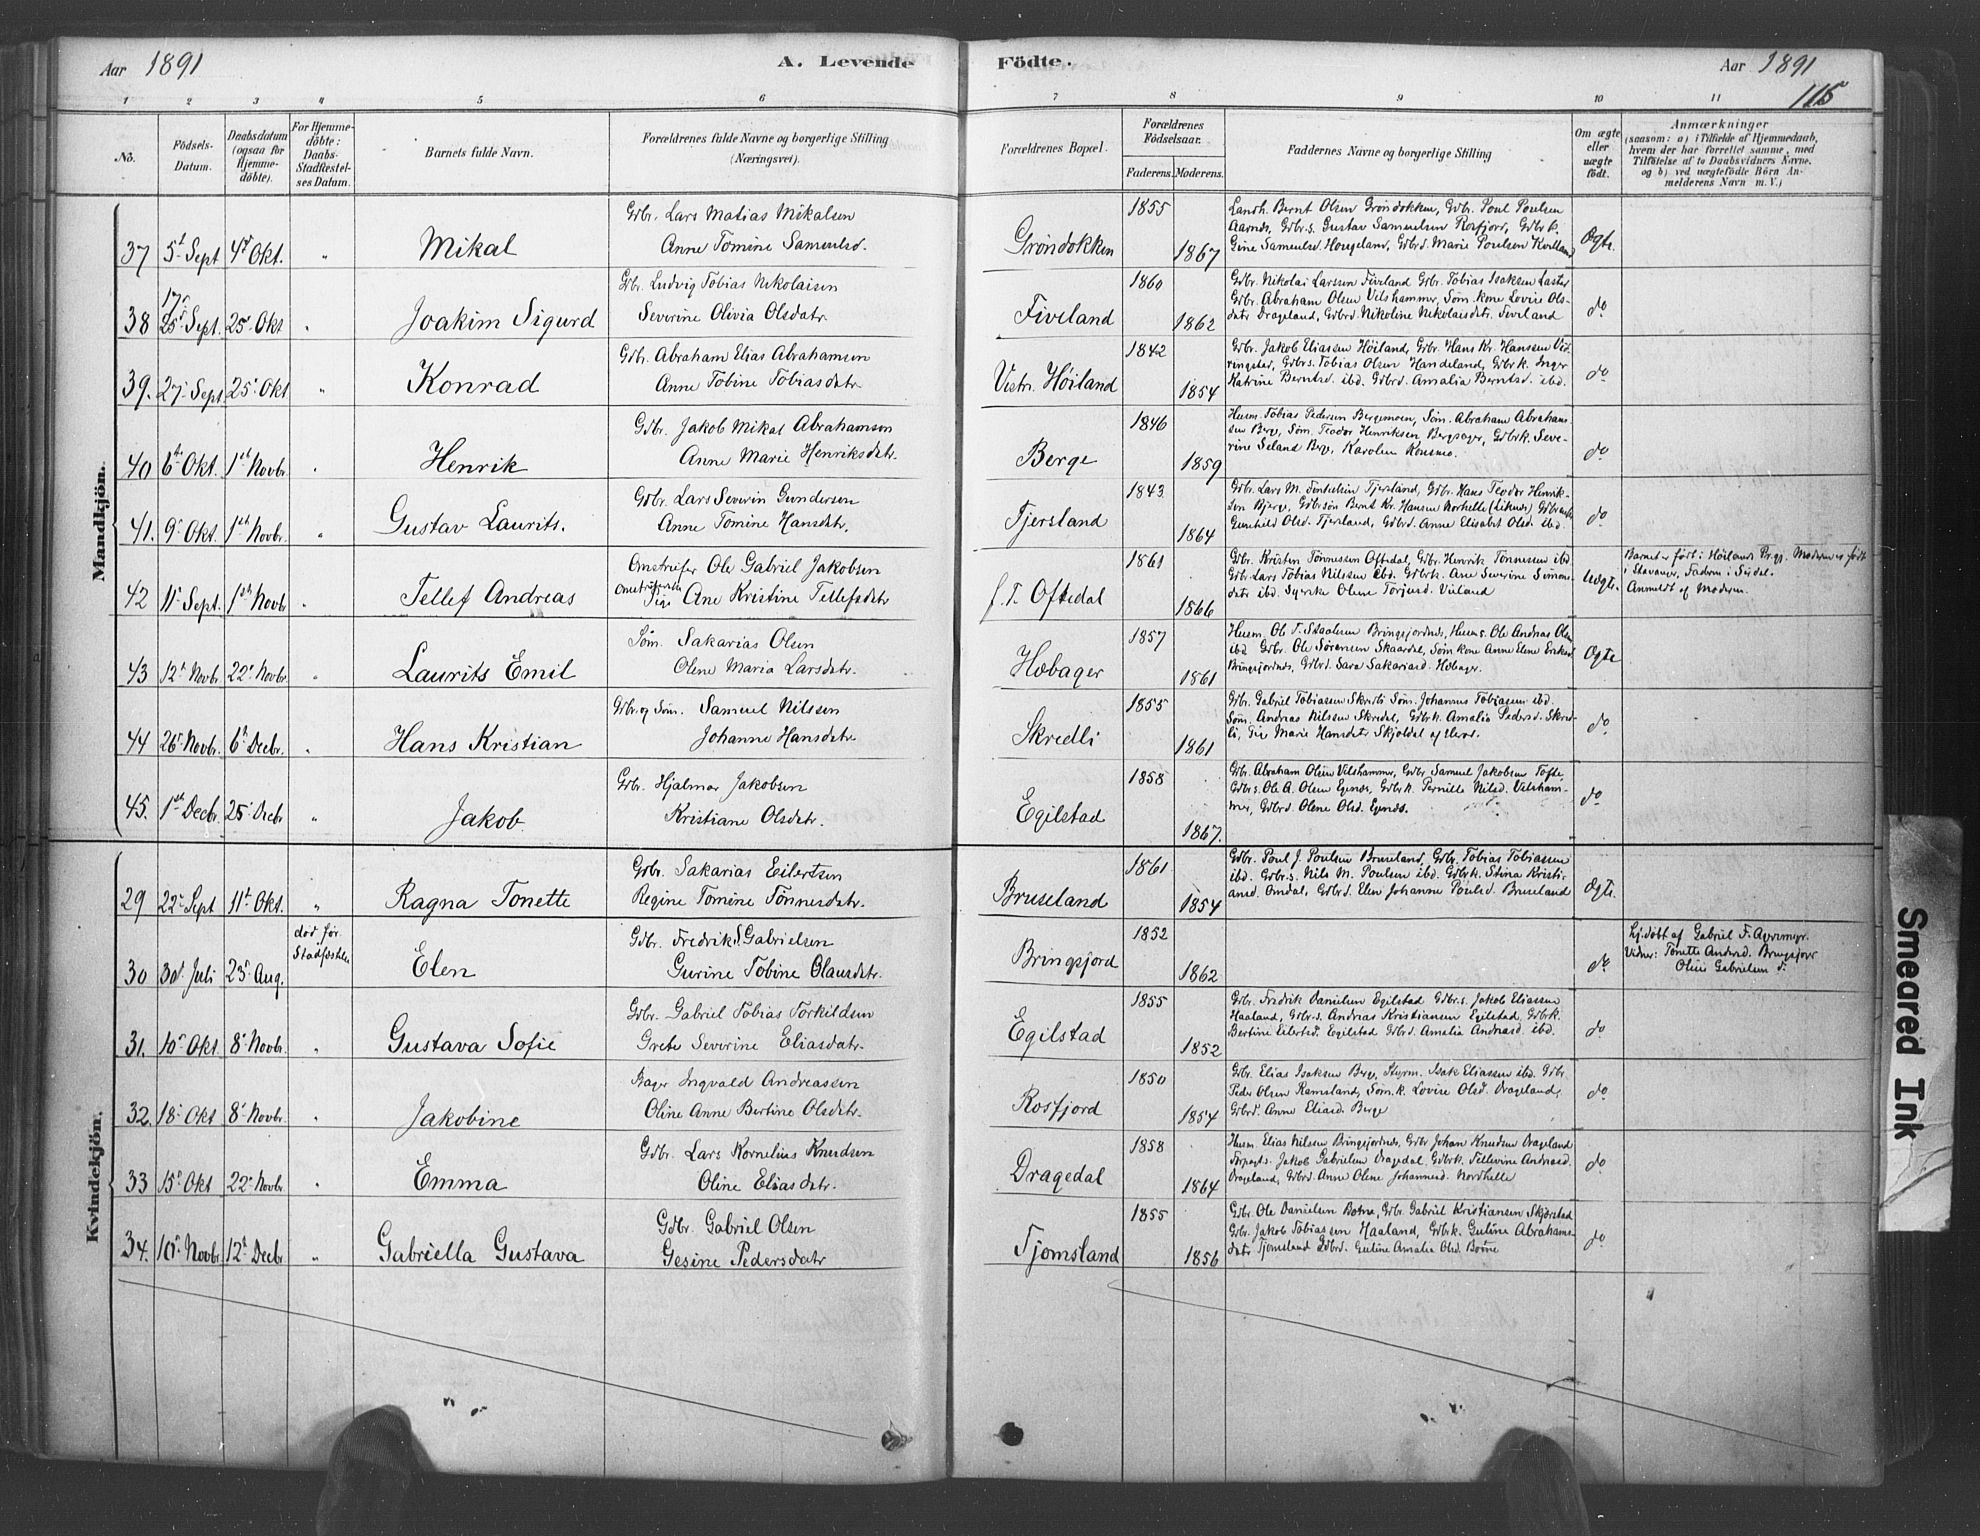 Aar 1891
A. Levende
Födte.
Aar 1891
115
1 2 3 4 5 6 7 8 9 10 11
No.
Födsels-
Datum.
Daabsdatum
(ogsaa för
Hjemme-
döbte).
For Hjemme-
döbte:
Daabs-
Stadfestel-
ses Datum.
Barnets fulde Navn.
Forældrenes fulde Navne og borgerlige Stilling
(Næringsvei).
Forældrenes Bopæl.
Forældrenes
Födselsaar.
Faderens. Moderens.
Faddernes Navne og borgerlige Stilling
Om ægte
eller
uægte
födt.
Anmærkninger
(saasom: a) i Tilfælde af Hjemmedaab,
hvem der har forrettet samme, med
Tilföielse af to Daabsvidners Navne.
og b) ved uægtefödte Börn An-
melderens Navn m. V.)
Mandkjön.
37 5t Sept 4de Okt. " Mikal
Gdbr. Lars Matias Mikalsen
Anne Tomine Samuelsd.
Gröndokken 1855 1867
Landh. Bernt Olsen Gröndokken, Gdbr. Poul Poulsen
Aavnds, Gdbr.s. Gustav Samuelsen Rosfjord, Gdbr.k.
Gine Samuelsd. Hougeland, Gdbrd. Marie Poulsen
Ægte.
38 17 25 Sept. 25 Okt " Joakim Sigurd
Gdbr. Ludvig Tobias Nikolaisen
Severine Olivia Olsdatr.
Fiveland 1860 1862
Gdbr. Nikolai Larssen Fiveland Gdbr. Tobias Isaksen
Gdbr. Abraham Olsen Vilshammer, Söm. kone Lovise Ols-
datr Drageland, Gdbrd. Nikoline Nikolaisdatr. Fiveland
do
39. 27 Sept 25 Okt " Konrad
Gdbr. Abraham Elias Abrahamsen
Anne Tobine Tobiasdatr.
Vestr. Höiland 1842 1854
Gdbr. Jakob Eliassen Höiland, Gdbr. Hans Kr. Hanssen Ved-
ringstad, Gdbrs. Tobias Olsen Handeland, Gdbrk. Inger
Katrine Berntsd. ibd. Gdbrd. Amalia Berntsd. ibd.
do
40 6te Okt. 1ste Novbr " Henrik
Gdbr. Jakob Mikal Abrahamsen
Anne Marie Henriksdatr.
Berge 1846 1859
Husm. Tobias Pedersen Bergemoen, Söm. Abraham Abraham-
sen Berge, Söm. Teodor Henriksen Bergsager, Gdbrk. Seve-
rine Seland Berge, Karoline Konsmo.
do
41. 9 Okt. 1ste Novbr. " Gustav Laurits.
Gdbr. Lars Severin Gundersen
Anne Tomine Hansdatr.
Tjersland 1843 1864
Gdbr. Lars M. Tjersland, Gdbr. Hans Teodor Henrik-
sen Bjerge, Gdbrsön Bernt Kr. Hansen
Gunhild Olsd. Tjersland, Gdbrd. Anne Elisabet Olsd. ibd.
do
42 11 Sept. 1ste Novbr " Tellef Andreas
Omstreifer Ole Gabriel Jakobsen
Omstreifende Pige Ane Kristine Tellefsdatr
f. T. Oftedal 1861 1866
Gdbr. Kristen Tönnessen Oftedal, Gdbr. Henrik Tönnessen ibd
Gdbr. Lars Tobias Nilssen ibd. Gdbrk. Ane Severine Simons-
datr ibd. Syerske Olene Torjusd. Veiland
Uægte.
Barnet er födt i Höilands Prgj. Moderen er födt
i Stavanger, Faderen i Sirdal.
Anmeldt af Moderen.
43 12 Novbr 22 Novbr. " Laurits Emil
Söm. Sakarias Olsen
Olene Maria Larsdatr.
Hobager 1857 1861
Husm. Ole T. Staalesen Bringsjordnes, Husm.s. Ole Andreas Olsen
ibd Gdbr. Ole Sörensen Skaardal, Söm.kone Anne Elene
Bringsjordnes, Gdbrd. Sara Sakariasd. Hobager.
Ægte
44 26 Novbr. 6te Decbr. " Hans Kristian
Gdbr. og Söm. Samuel Nilssen
Johanne Hansdatr
Skredli 1855 1861
Gdbr. Gabriel Tobiassen Skredli Söm. Johannes Tobiassen ibd.
Söm. Andreas Nilssen Skredli, Gdbrk. Amalia Pedersd. Skred-
li, Marie Hansdatr Skjoldal
do
45. 1ste Decbr. 25 Decbr " Jakob
Gdbr. Hjalmar Jakobsen
Kristiane Olsdatr.
Egilstad 1858 1867.
Gdbr. Abraham Olsen Vilshammer, Gdbr Samuel Jakobsen Tofte,
Gdbr.s. Ole A. Olsen Egenes, Gdbr.k. Pernille Nilsd. Vilsham-
mer, Gdbrd. Olene Olsd. Egenes.
do
Kvindekjön.
29 22 Sept 11te Okt. " Ragna Tonette
Gdbr. Sakarias Eilertsen
Regine Tomine Tönnesdatr.
Bruseland 1861 1854
Gdbr. Poul J. Poulsen Bruseland, Gdbr. Tobias Tobiassen
ibd. Gdbr.s. Nils M. Poulsen ibd. Gdbrk. Stina Kristi-
ansd. Omdal, Gdbrd. Elen Johanne Poulsd. Bruseland
Ægte.
30 30 Juli 23 Aug. död för Stadfestelse Elen
Gdbr. Fredrik S. Gabrielsen
Gurine Tobine Olausdatr.
Bringsjord 1852 1862
do
hj.döbt af Gabriel F.
Vidner: Tonette Andersd. Bringsjord
Gabrielsen
31. 10 Okt 8 Novbr. " Gustava Sofie
Gdbr. Gabriel Tobias Torkildsen
Grete Severine Eliasdatr.
Egilstad 1855 1852
Gdbr. Fredrik Danielsen Egilstad Gdbr.s. Jakob Eliassen
Haaland, Gdbr.s. Andreas Kristiansen Egilstad, Gdbrk.
Bertine Eilertsd. Egilstad Gdbrd. Amalia Andreasd. ibd.
do
32. 18 Okt 8 Novbr. " Jakobine
Bager Ingvald Andreassen
Oline Anne Bertine Olsdatr.
Rosfjord 1850 1854
Gdbr. Elias Isaksen Berge, Styrm. Isak Eliassen ibd. Gdbr.
Peder Olsen Ramsland, Söm.k. Lovise Olsd. Drageland,
Gdbrd. Anne Eliasd. Berge
do
33 15 Okt 22 Novbr. " Emma
Gdbr. Lars Kornelius Knudsen
Oline Eliasdatr.
Dragedal 1858 1864
Husm. Elias Nilssen Bringsjordnes, Gdbr Johan Knudsen Drageland
Forpagts. Jakob Gabrielsen Dragedal, Gdbrk. Tellevine Andreasd.
Drageland, Gdbrd. Anne Oline Johannesd. Nordhelle
do
34. 10 Novbr. 12te Decbr " Gabriella Gustava
Gdbr. Gabriel Olsen
Gesine Pedersdatr
Tjomsland 1855 1856
Gdbr. Ole Danielsen Botne, Gdbr. Gabriel Kristiansen Skjerstad
Gdbr. Jakob Tobiassen Haaland, Gdbrk. Guline Abrahams-
datr Tjomsland Gdbrd. Guline Amalia Olsd. Botne
do
Smeared Ink